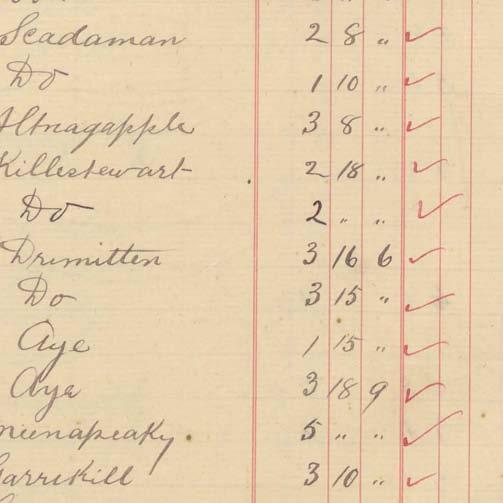 Scadaman 2 8 „
Do 1 10 „
Altnagapple 3 8 „
Killestewart 2 18 „
Do 2 „ „
Drimitten 3 16 6
Do 3 15 „
Aye 1 15 „
Aye 3 18 9
meenapeaky 5 „ „
Garrikill 3 10 „